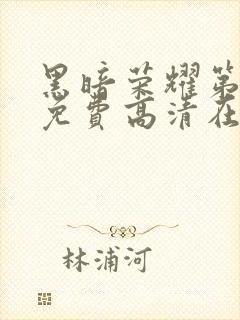 黑暗荣耀第
免费高清在
林浦河